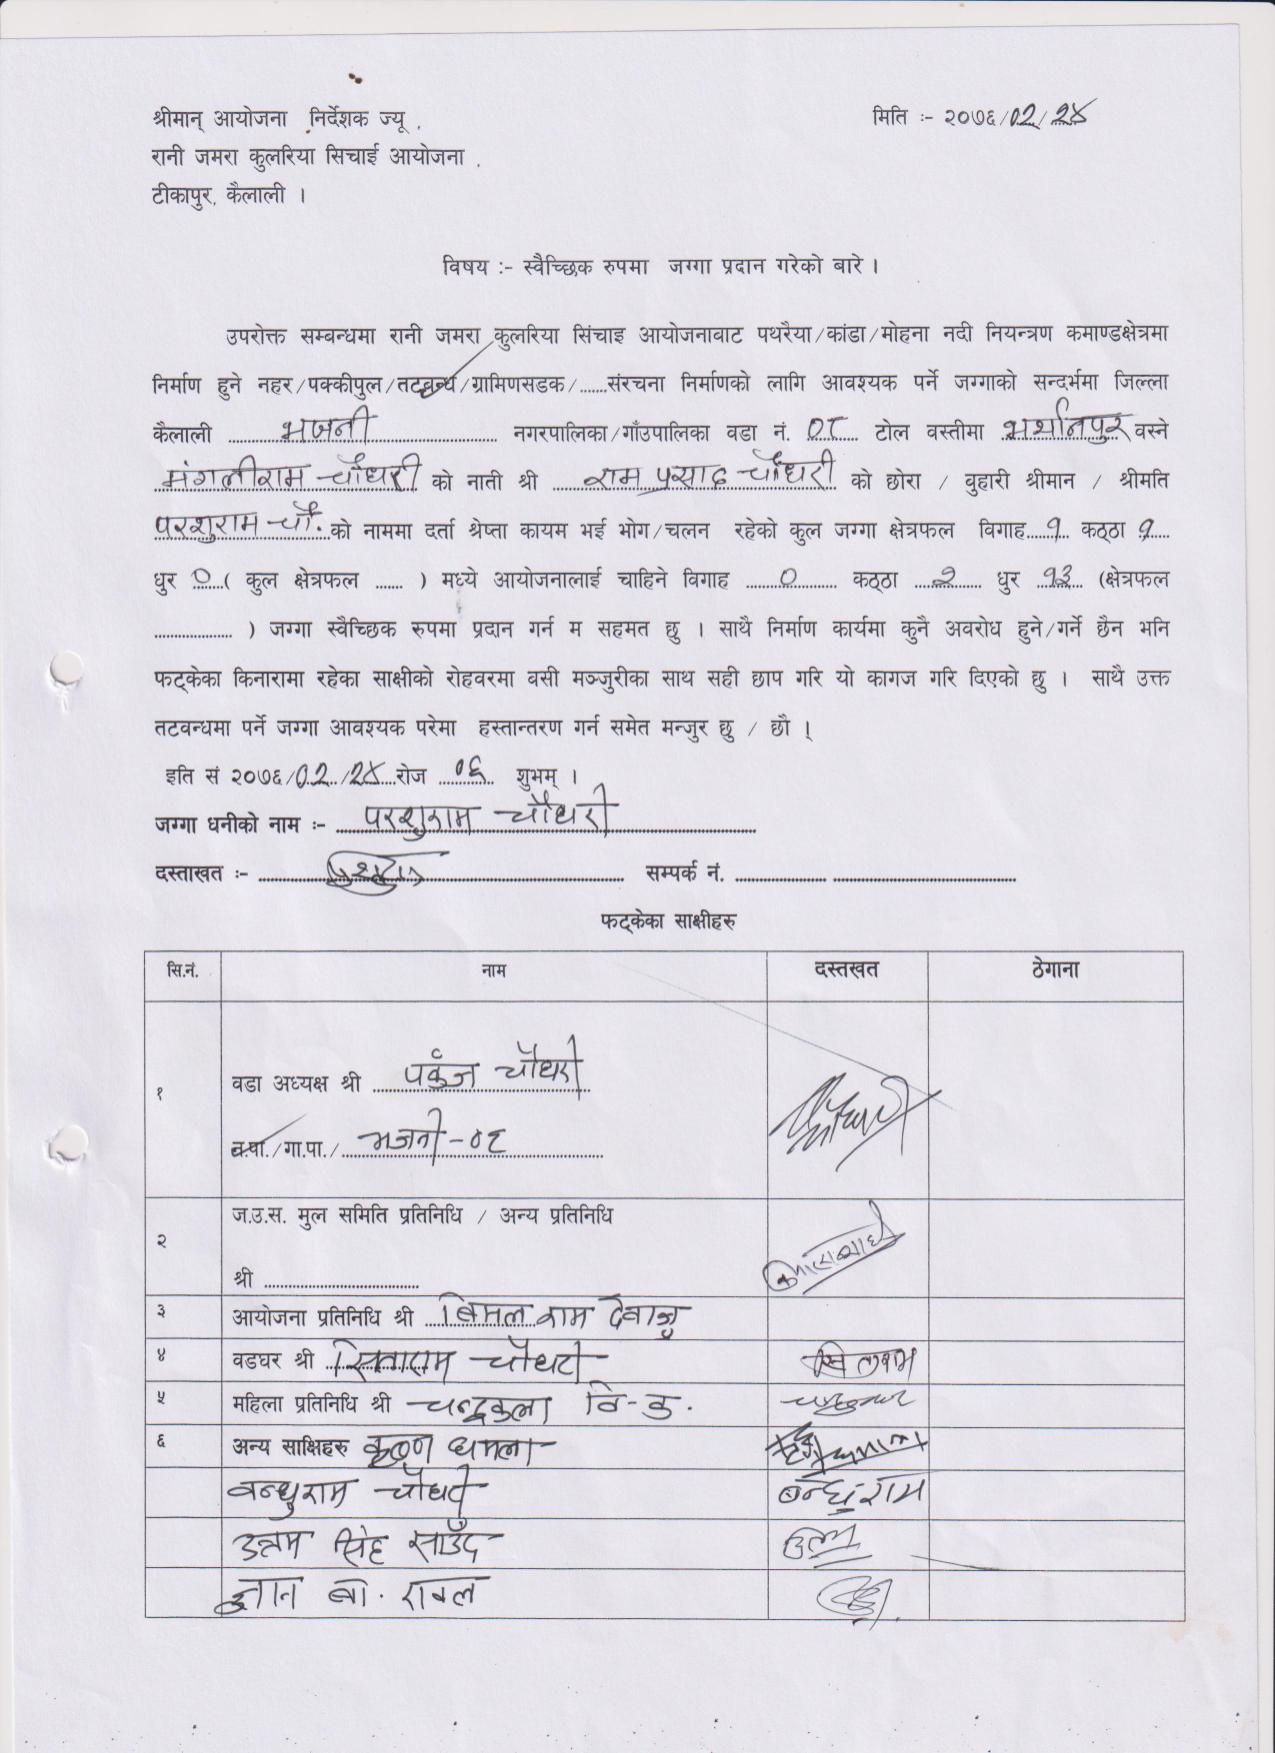 श्रीमान् आयोजना निर्देशक ज्यू , मिति :- २०७६/02/२४
रानी जमरा कुलरिया सिचाई आयोजना .
टीकापुर, कैलाली ।
विषय :- स्वैच्छिक रुपमा जग्गा प्रदान गरेको बारे ।
उपरोक्त सम्बन्धमा रानी जमरा कुलरिया सिंचाइ आयोजनाबाट पथरैया/कांडा/मोहना नदी नियन्त्रण कमाण्डक्षेत्रमा
निर्माण हुने नहर/पक्कीपुल/तटबन्ध/ग्रामिणसडक/......संरचना निर्माणको लागि आवश्यक पर्ने जग्गाको सन्दर्भमा जिल्ला
कैलाली भजनी नगरपालिका/गाँउपालिका वडा नं. ०८ टोल वस्तीमा वस्ने
मंगलीराम चौधरी को नाती श्री राम प्रसाद चौधरी को छोरा / बुहारी श्रीमान / श्रीमति
परशुराम चौ. को नाममा दर्ता श्रेष्ता कायम भई भोग/चलन रहेको कुल जग्गा क्षेत्रफल विगाह १ कठ्ठा १
धुर ० ( कुल क्षेत्रफल ...... ) मध्ये आयोजनालाई चाहिने विगाह ० कठ्ठा २ धुर १३ (क्षेत्रफल
.................... ) जग्गा स्वैच्छिक रुपमा प्रदान गर्न म सहमत छु । साथै निर्माण कार्यमा कुनै अवरोध हुने/गर्ने छैन भनि
फट्केका किनारामा रहेका साक्षीको रोहवरमा वसी मञ्जुरीका साथ सही छाप गरि यो कागज गरि दिएको छु । साथै उक्त
तटवन्धमा पर्ने जग्गा आवश्यक परेमा हस्तान्तरण गर्न समेत मन्जुर छु / छौ ।
इति सं २०७६/02/२४ रोज ०६ शुभम् ।
जग्गा धनीको नाम :- परशुराम चौधरी
दस्ताखत :- सम्पर्क नं.
फट्केका साक्षीहरु
सि.नं. नाम दस्तखत ठेगाना
१ वडा अध्यक्ष श्री पकुंज चौधरी
न.पा./गा.पा./ भजनी-०८
२ ज.उ.स. मुल समिति प्रतिनिधि / अन्य प्रतिनिधि
श्री
३ आयोजना प्रतिनिधि श्री बिमल राम देवाजु
४ वडघर श्री सिताराम चौधरी
५ महिला प्रतिनिधि श्री चन्द्रकुला वि-क.
६ अन्य साक्षिहरु कृष्ण धमला
बन्धुराम चौधरी बन्धुराम
उत्तम सिंह साउँद
ज्ञान बा. रावल